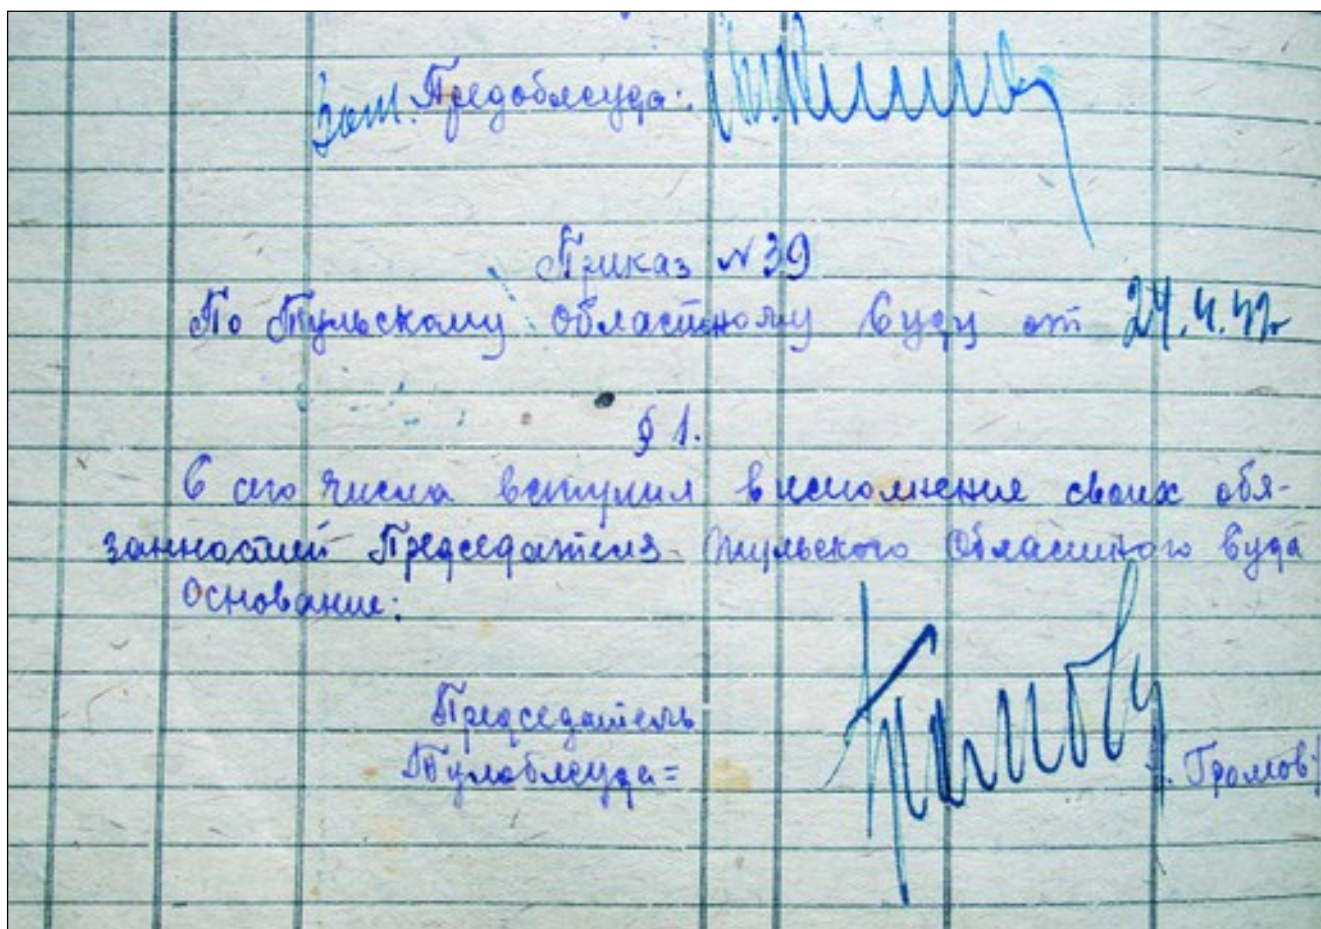 Зам. Предоблсуда:
Приказ №39
По Тульскому Областному Суду от 24.4.42г
§ 1.
С сего числа вступил в исполнение своих обя-
занностей Председателя Тульского Областного Суда
Основание:
Председатель
Тулоблсуда= Громов